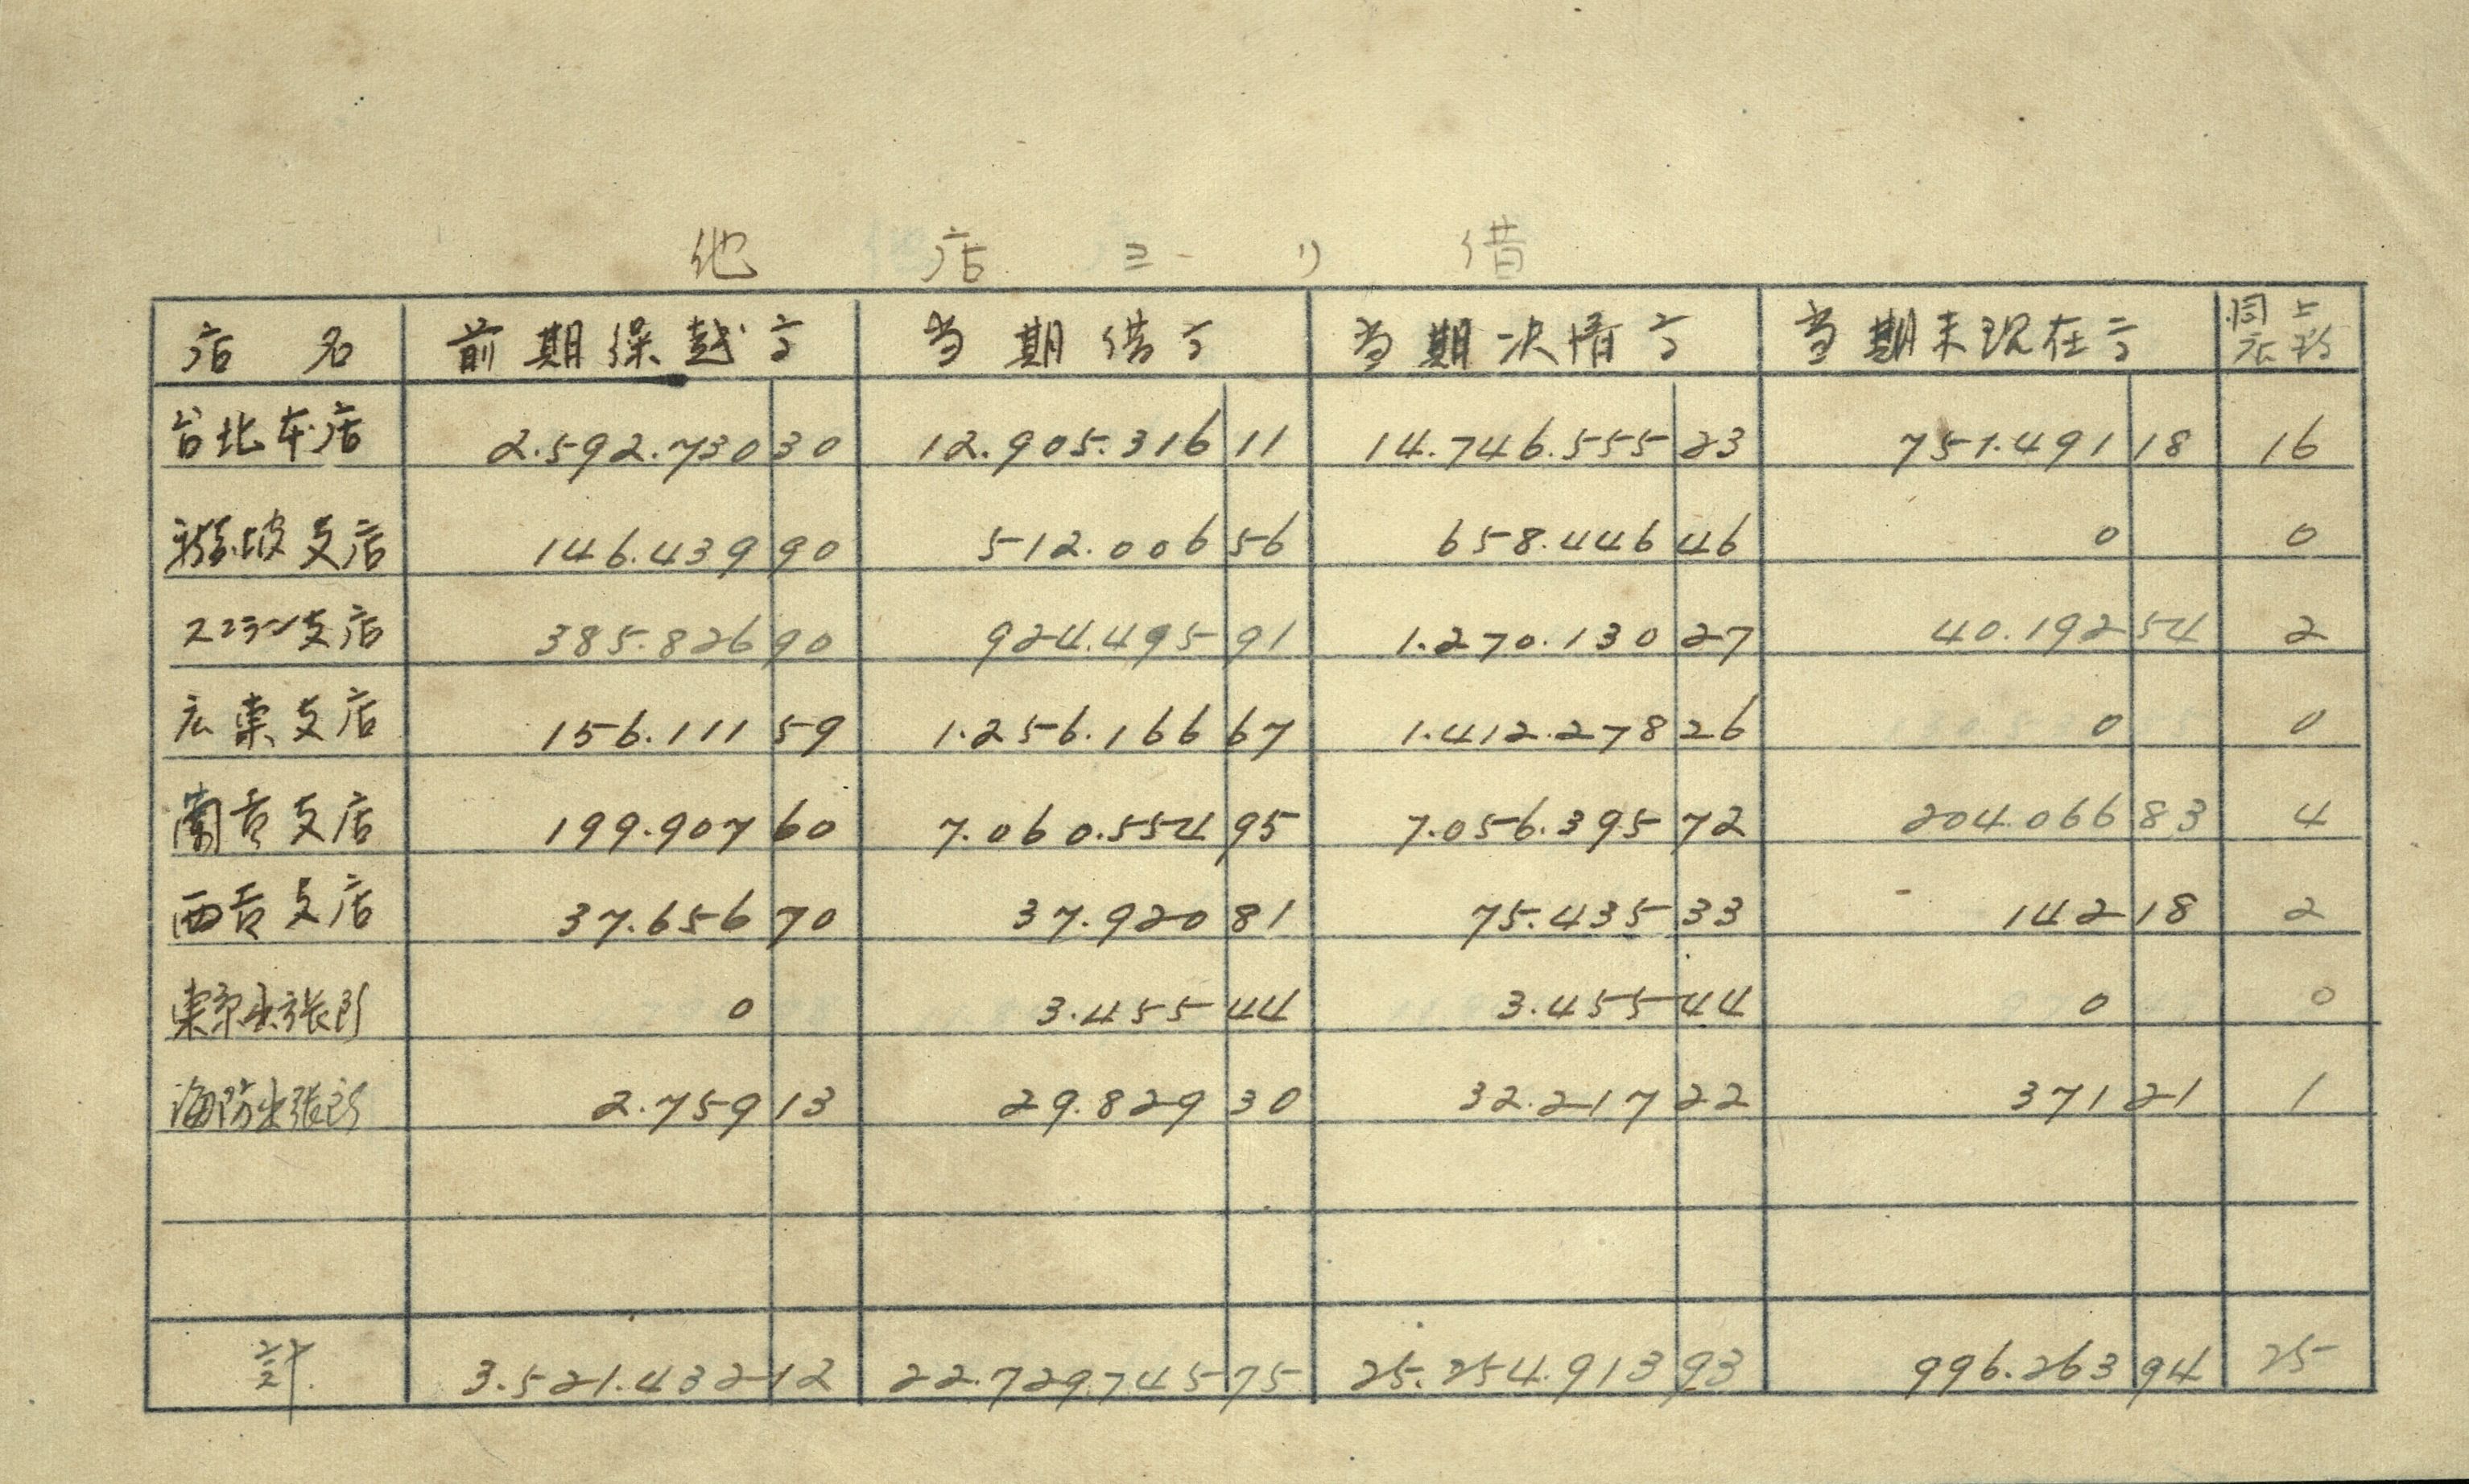 他店ヨリ借
店名 前期繰越高 当期借高 当期決済高 当期末現在高 同上 口数
台北本店 2.592.730 30 12.905.316 11 14.746.555 23 751.491 18 16
新嘉坡支店 146.439 90 512.006 56 658.446 46 0 0
スラバヤ支店 385.826 90 924.495 91 1.270.130 27 40.192 54 2
広東支店 156.111 59 1.256.166 67 1.412.278 26 0 0
蘭吉支店 199.907 60 7.060.554 95 7.056.395 72 204.066 83 4
西吉支店 37.656 70 37.920 81 75.435 33 142 18 2
東京出張所 0 3.455 44 3.455 44 0 0
海防出張所 2.759 13 29.829 30 32.217 22 371 21 1
計 3.521.432 12 22.729.745 75 25.254.913 93 996.263 94 25